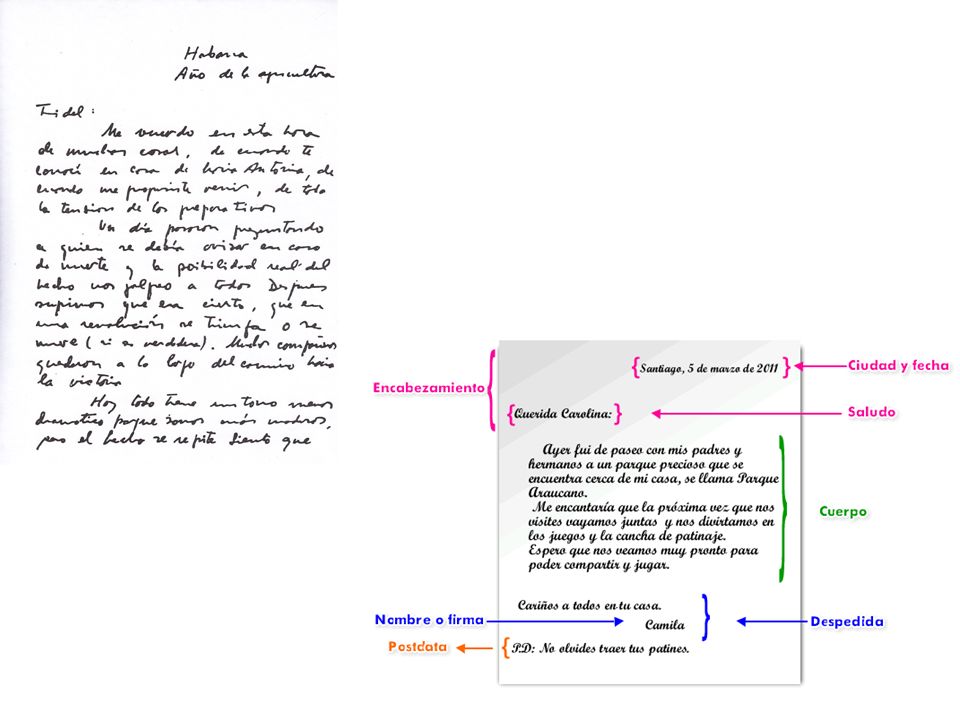 Habana
Año de la agricultura
Fidel:
Me recuerdo en esta hora
de muchas cosas, de cuando te
conocí en casa de María Antonia, de
cuando me propusiste venir, de toda
la tensión de los preparativos
Un día pasaron preguntando
a quien se debía avisar en caso
de muerte y la posibilidad real del
hecho nos golpeó a todos Despues
supimos que era cierto, que en
una revolución se triunfa o se
muere (si es verdadera). Muchos compañeros
quedaron a lo largo del camino hacia
la victoria
Hoy todo tiene un tono menos
dramatico porque somos más maduros,
pero el hecho se repite Siento que
Encabezamiento
{Santiago, 5 de marzo de 2011}
Ciudad y fecha
{Querida Carolina:}
Saludo
Ayer fui de paseo con mis padres y
hermanos a un parque precioso que se
encuentra cerca de mi casa, se llama Parque
Araucano.
Me encantaría que la próxima vez que nos
visites vayamos juntas y nos divirtamos en
los juegos y la cancha de patinaje.
Espero que nos veamos muy pronto para
poder compartir y jugar.
Cuerpo
Cariños a todos en tu casa.
Nombre o firma
Camila
Despedida
Postdata
P.D: No olvides traer tus patines.